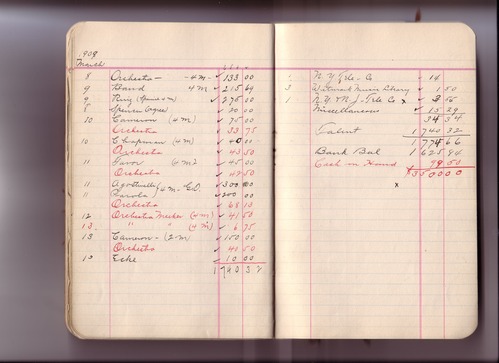 1909
March
8 Orchestra - 4m - 133 00
9 Band 4m 215 64
9 King (Spinners 275 00
9 Spencer 20 00
10 Cameron (4m) 75 00
Orchestra 33 75
10 Chapman (4m) 40 00
Orchestra 43 50
11 Favor (4m) 45 00
Orchestra 42 50
11 4m - CD. 300 00
11 200 00
Orchestra 68 10
12 Orchestra Meeker (4m) 41 50
13 " " (4m) 6 75
13 Cameron - (2m) 150 00
Orchestra 41 50
13 Ecke 10 00
1 740 32
1 N.Y. Tele. Co 14
3 Witmark Music Library 1 50
1 N.Y. & N.J. Tele Co x 3 56
Miscellaneous 15 29
34 34
Talent 1740 32
1774 66
Bank Bal 1625 84
Cash on Hand 99 50
$3500 00
x